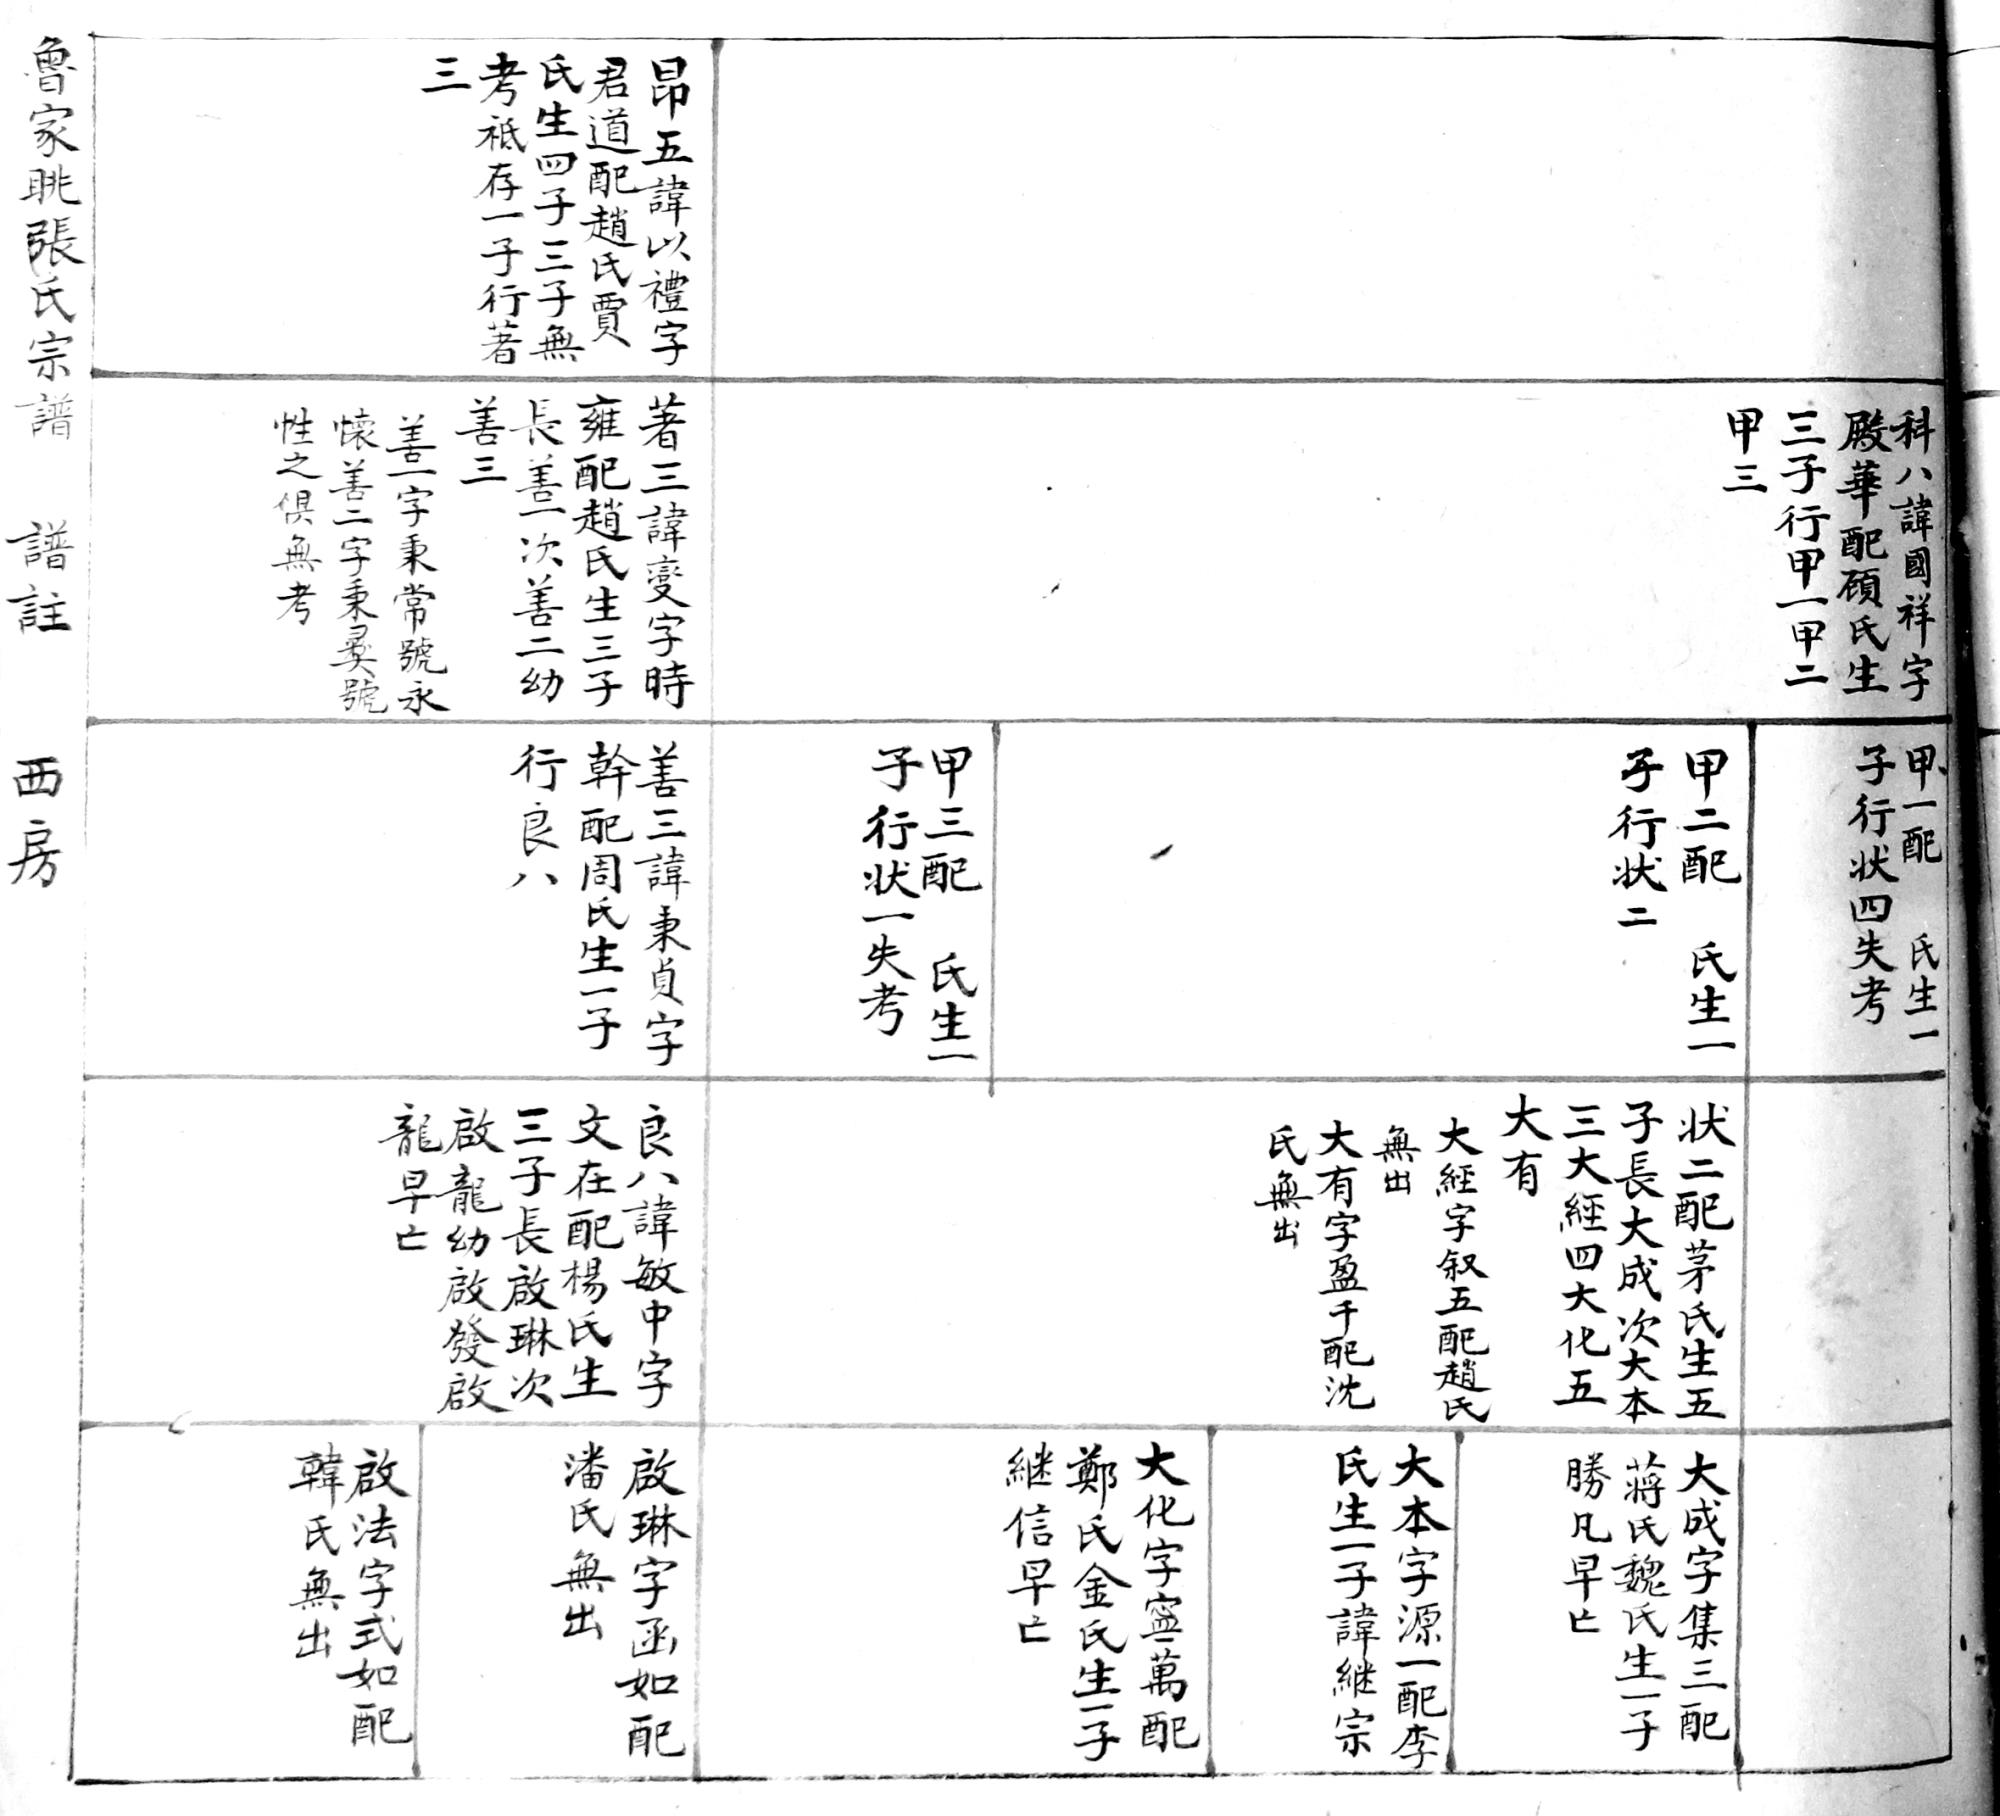 科八諱國祥字
殿華配顧氏生
三子行甲一甲二
甲三
甲一配 氏生一
子行状四失考
甲二配 氏生一
子行状二
甲三配 氏生一
子行状一失考
状二配茅氏生五
子長大成次大本
三大經四大化五
大有
大經字叙五配趙氏
無出
大有字盈千配沈
氏無出
大成字集三配
蔣氏魏氏生一子
勝凡早亡
大本字源一配李
氏生一子諱継宗
大化字寧萬配
鄭氏金氏生一子
継信早亡
昂五諱以禮字
君道配趙氏賈
氏生四子三子無
考祗存一子行著
三
著三諱變字時
雍配趙氏生三子
長善一次善二幼
善三
善一字秉常號永
懐善二字秉彝號
性之俱無考
善三諱秉貞字
幹配周氏生一子
行良八
良八諱敏中字
文在配楊氏生
三子長啟琳次
啟龍幼啟發啟
龍早亡
啟琳字函如配
潘氏無出
啟法字式如配
韓氏無出
魯家眺張氏宗譜 譜註 西房